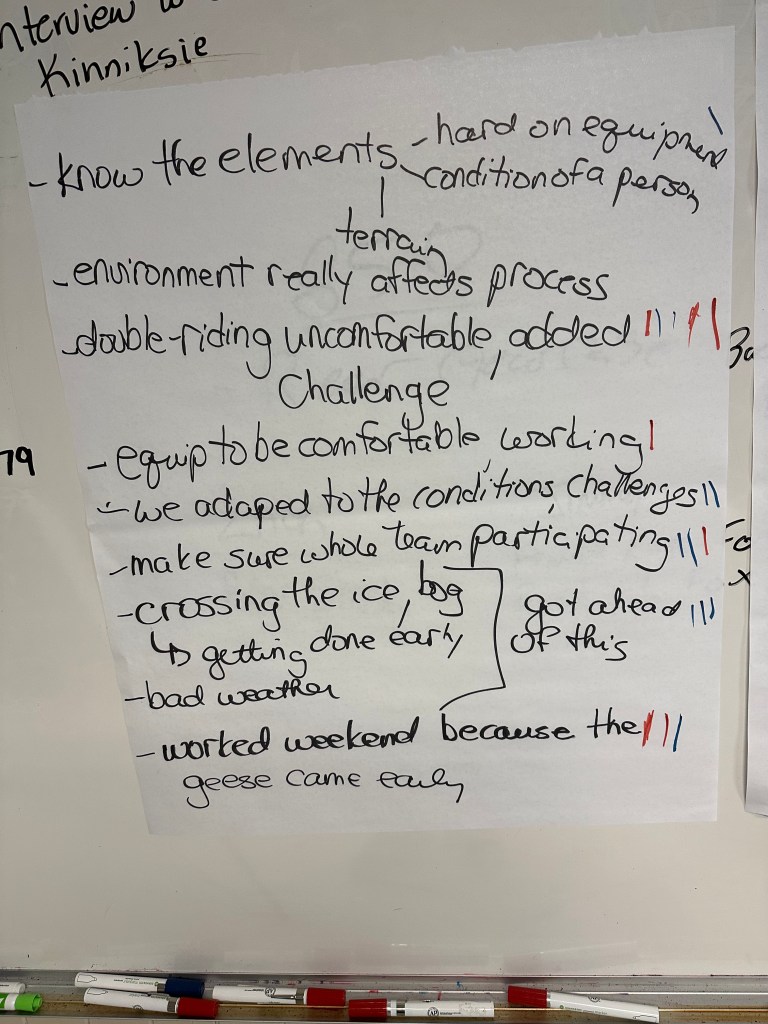 nterview w
Kinniksie
- know the elements - hard on equipment
- condition of a person
terrain
- environment really affects process
- double-riding uncomfortable, added
Challenge
- equip to be comfortable working
- we adaped to the conditions, challenges
- make sure whole team participating
- crossing the ice, bog
↳ getting done early
got ahead
of this
- bad weather
- worked weekend because the
geese came early
79